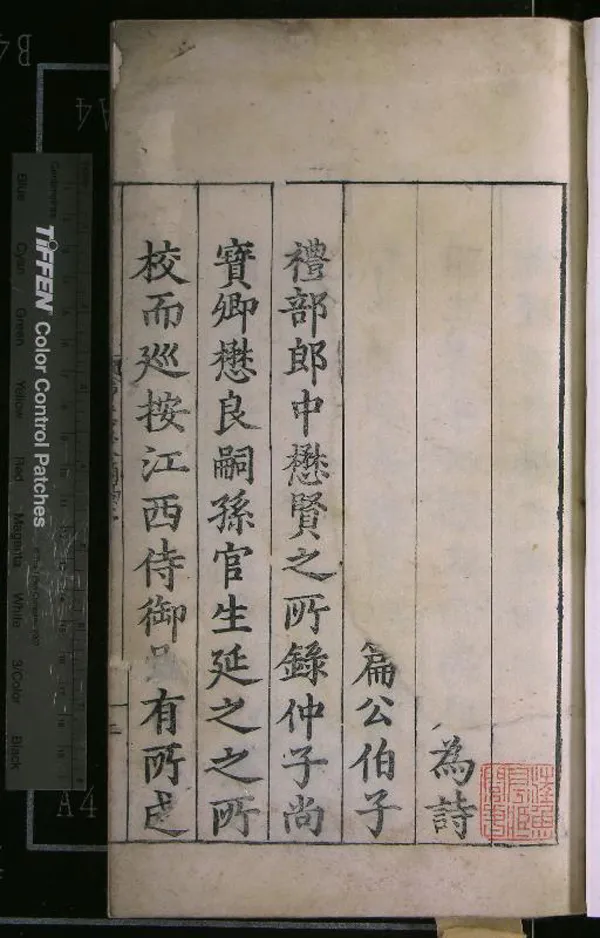 為詩
篇公伯子
禮部郎中懋賢之所錄仲子尚
寶卿懋良嗣孫官生延之之所
校而廵按江西侍御 有所述
TIFFEN Color Control Patches
Blue Cyan Green Yellow Red Magenta White 3/Color Black
A4
A4
B4